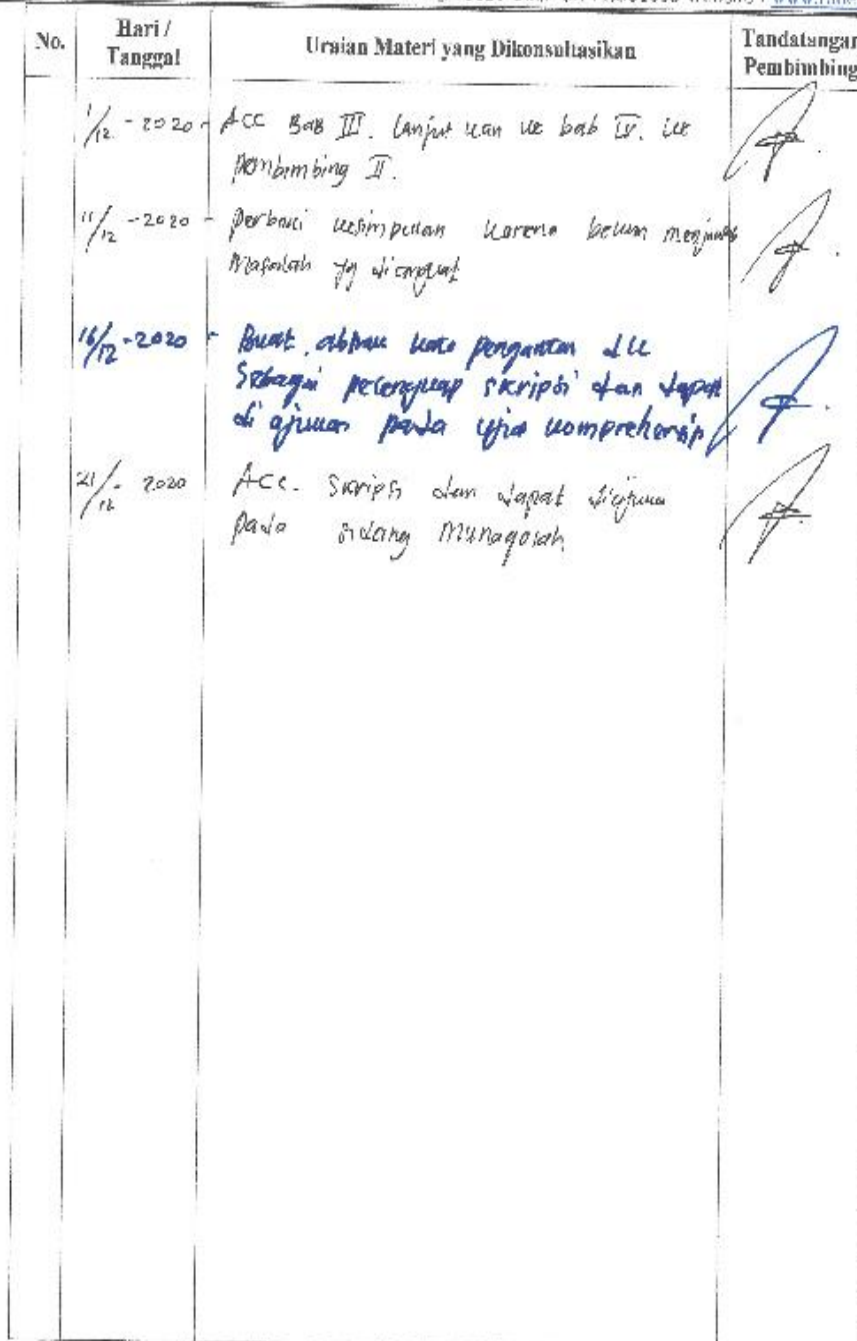 No.
Hari /
Tanggal
Uraian Materi yang Dikonsultasikan
Tandatangan
Pembimbing
1/12 - 2020 - Acc Bab III. lanjutkan ke bab IV. ke
Pembimbing II.
11/12 - 2020 - perbaiki kesimpulan karena belum menjawab
Masalah yg diangkat
16/12 - 2020 - Buat abstrak kata pengantar dll
Sebagai pelengkap skripsi dan dapat
di ajukan pada ujian komprehensip
21/12 - 2020 Acc. Skripsi dan dapat diajukan
pada sidang Munaqosah